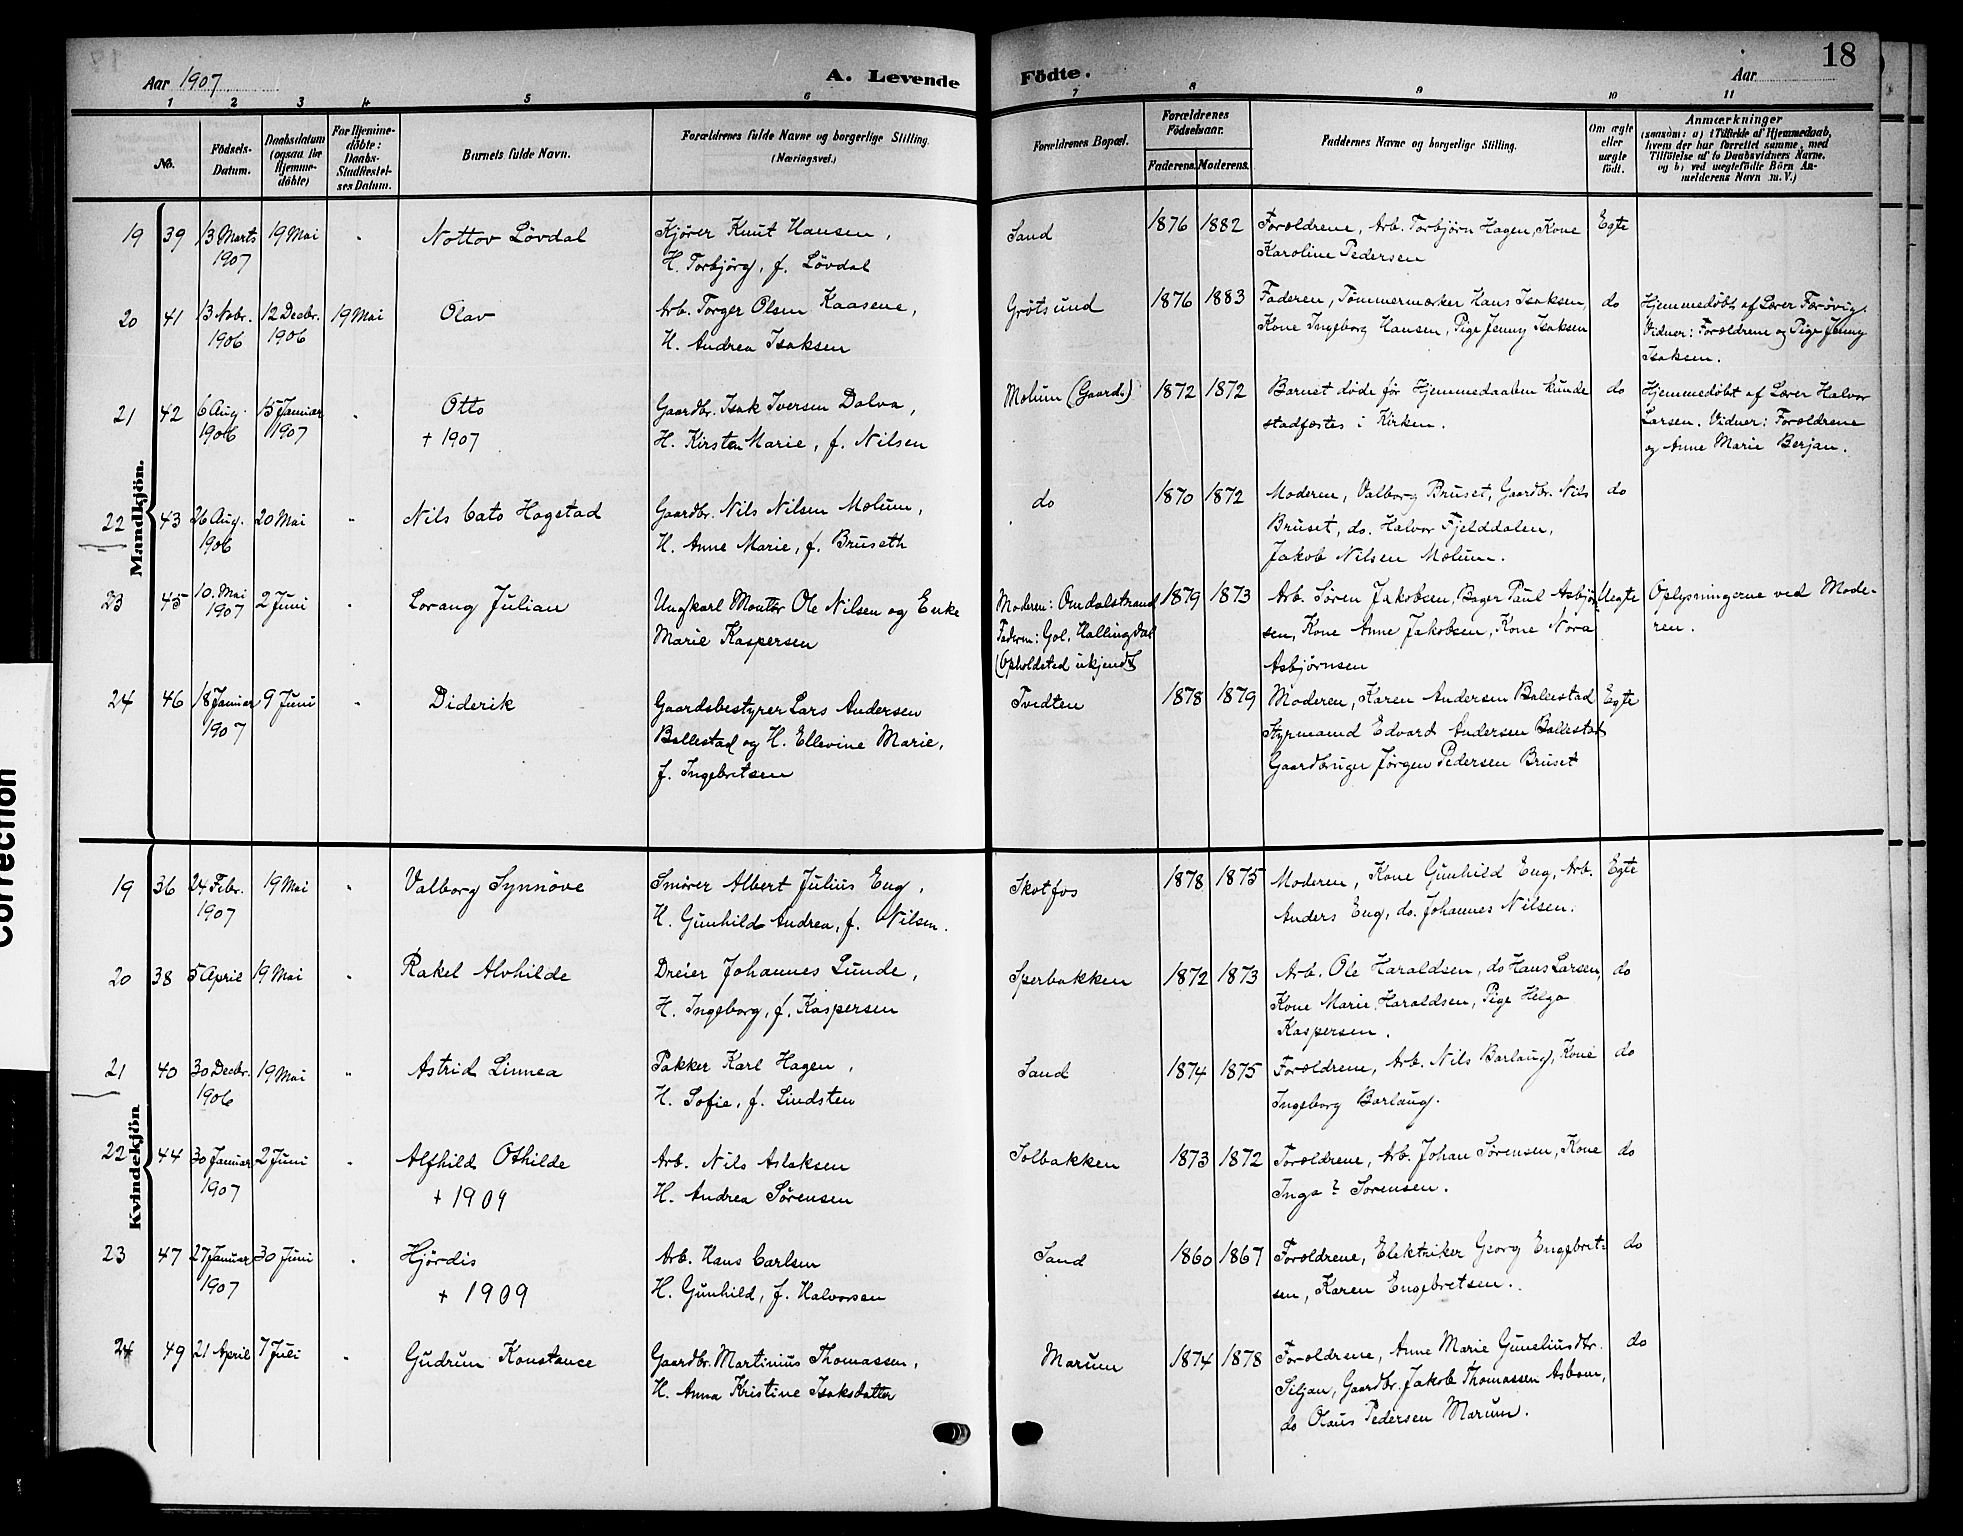 Aar 1907
A. Levende Födte.
Aar
18
1 2 3 4 5 6 7 8 9 10 11
No.
Födsels-Datum.
Daabsdatum (ogsaa for Hjemmedöbte)
For Hjemmedöbte: Daabs-Stadfæstelses Datum.
Barnets fulde Navn.
Forældrenes fulde Navne og borgerlige Stilling. (Næringsvei.)
Forældrenes Bopæl.
Forældrenes Födselsaar.
Faderens. Moderens.
Faddernes Navne og borgerlige Stilling.
Om ægte eller uægte födt.
Anmærkninger
(saasom: a) i Tilfælde af Hjemmedaab, hvem der har forrettet samme, med Tilföielse af to Daabsvidners Navne, og b) ved uægtefödte Börn Anmelderens Navn m. V.)
Mandkjön.
19 39 13 Marts 1907 19 Mai " Nottov Lövdal
Kjører Knut Hansen,
H. Torbjörg, f. Lövdal
Sand 1876 1882
Forældrene, Arb. Torbjörn Hagen, Kone
Karoline Pedersen
Egte
20 41 13 Nobr. 1906 12 Decbr. 1906 19 Mai Olav
Arb. Torger Olsen Kaasene,
H. Andrea Isaksen
Grötsund 1876 1883
Faderen, Tømmermærker Hans Isaksen,
Kone Ingeborg Hansen, Pige Jenny Isaksen
do
Hjemmedøbt af Lærer Færøvig.
Vidner: Forældrene og Pige Jenny
Isaksen.
21 42 6 Aug. 1906 15 Januar 1907 " Otto
+ 1907
Gaardbr. Isak Iversen Dalva,
H. Kirsten Marie, f. Nilsen
Molum (Gaard.) 1872 1872
Barnet døde før Hjemmedaaben kunde
stadfæstes i Kirken.
do
Hjemmedøbt af Lærer Halvor
Larsen. Vidner: Forældrene
og Anne Marie Berjan.
22 43 26 Aug. 1906 20 Mai " Nils Cato Hogstad
Gaardbr. Nils Nilsen Molum,
H. Anne Marie, f. Bruseth
do 1870 1872
Moderen, Valborg Bruset, Gaardbr. Nils
Bruset, do. Halvor Fjelddalen,
Jakob Nilsen Molum.
do
23 45 10. Mai 1907 2 Juni " Lorang Julian
Ungkarl Montör Ole Nilsen og Enke
Marie Kaspersen
Moderen: Omdalstrand
Faderen: Gol, Hallingdal
(Opholdsted ukjendt)
1879 1873
Arb. Søren Jakobsen, Bager Paul Asbjørn
sen, Kone Anne Jakobsen, Kone Nora
Asbjørnsen
Uegte
Oplysningerne ved Mode-
ren.
24 46 18 Januar 1907 9 Juni " Diderik
Gaardsbestyrer Lars Andersen
Ballestad og H. Ellevine Marie,
f. Ingebretsen
Tvedten 1878 1879
Moderen, Karen Andersen Ballestad
Styrmand Edvard Andersen Ballestad
Gaardbruger Jørgen Pedersen Bruset
Egte
Kvindekjön
19 36 24 Febr. 1907 19 Mai " Valborg Synnöve
Smører Albert Julius Eng,
H. Gunhild Andrea, f. Nilsen.
Skotfos 1878 1875
Moderen, Kone Gunhild Eng, Arb.
Anders Eng, do. Johannes Nilsen.
Egte
20 38 5 April 19 Mai " Rakel Alvhilde
Dreier Johannes Lunde,
H. Ingeborg, f. Kaspersen
Sperbakken 1872 1873
Arb. Ole Haraldsen, do Hans Larsen,
Kone Marie Haraldsen, Pige Helga
Kaspersen.
do
21 40 30 Decbr. 1906 19 Mai " Astrid Linnea
Pakker Karl Hagen,
H. Sofie, f. Lindsten
Sand 1874 1875
Forældrene, Arb. Nils Barlaug, Kone
Ingeborg Barlaug.
do
22 44 30 Januar 1907 2 Juni " Alfhild Othilde
+ 1909
Arb. Nils Aslaksen
H. Andrea Sörensen
Solbakken 1873 1872
Forældrene, Arb. Johan Sørensen, Kone
Inga ? Sorensen.
do
23 47 27 Januar 1907 30 Juni " Hjördis
+ 1909
Arb. Hans Carlsen
H. Gunhild, f. Halvorsen
Sand 1860 1867
Forældrene, Elektriker Georg Engebret-
sen, Karen Engebretsen.
do
24 49 21 April 7 Juli " Gudrun Konstance
Gaardbr. Martinius Thomassen,
H. Anna Kristine Isaksdatter
Marum 1874 1878
Forældrene, Anne Marie Guneliusdtr.
Siljan, Gaardbr. Jakob Thomassen Asbom,
do Olaus Pedersen Marum.
do
Correction